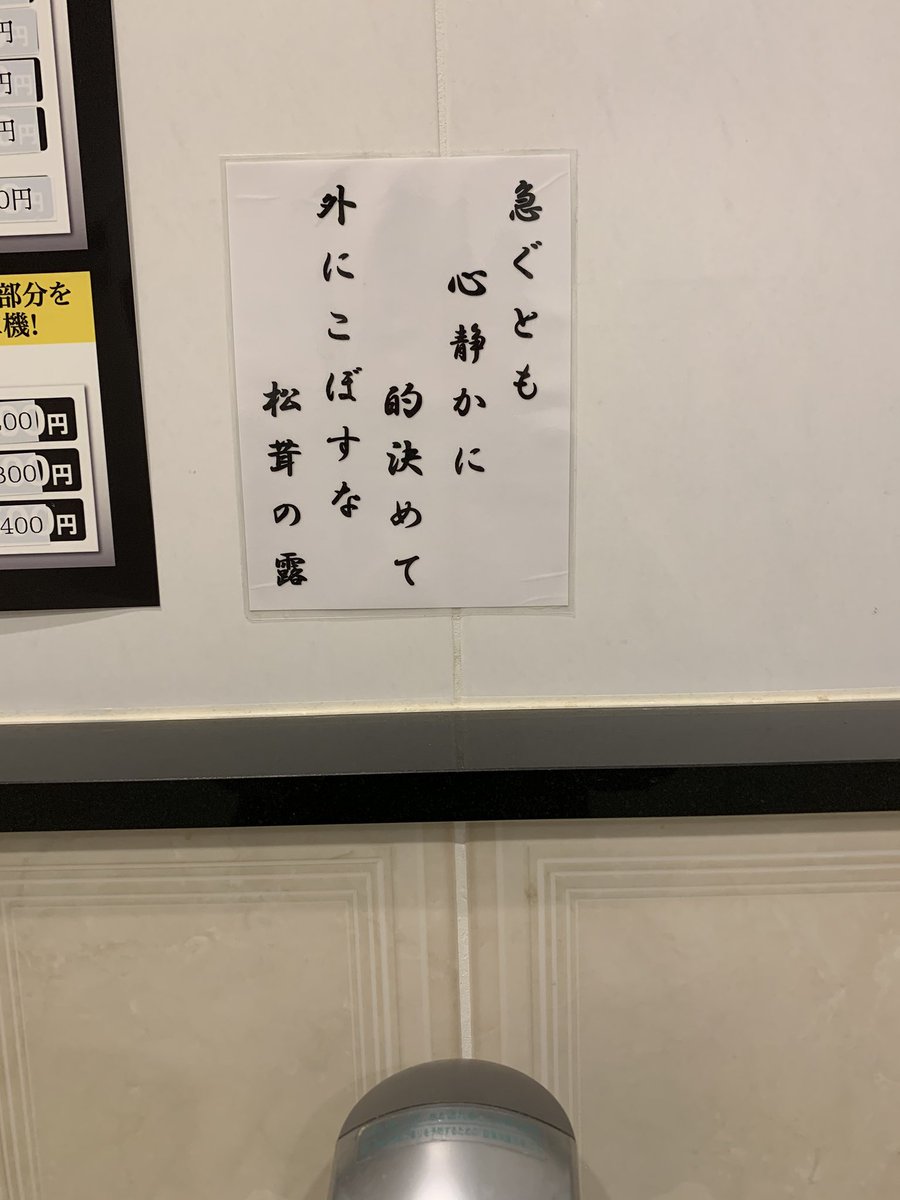 急ぐとも
心静かに
的決めて
外にこぼすな
松茸の露
円
円
円
0円
部分を
機!
00円
300円
400円